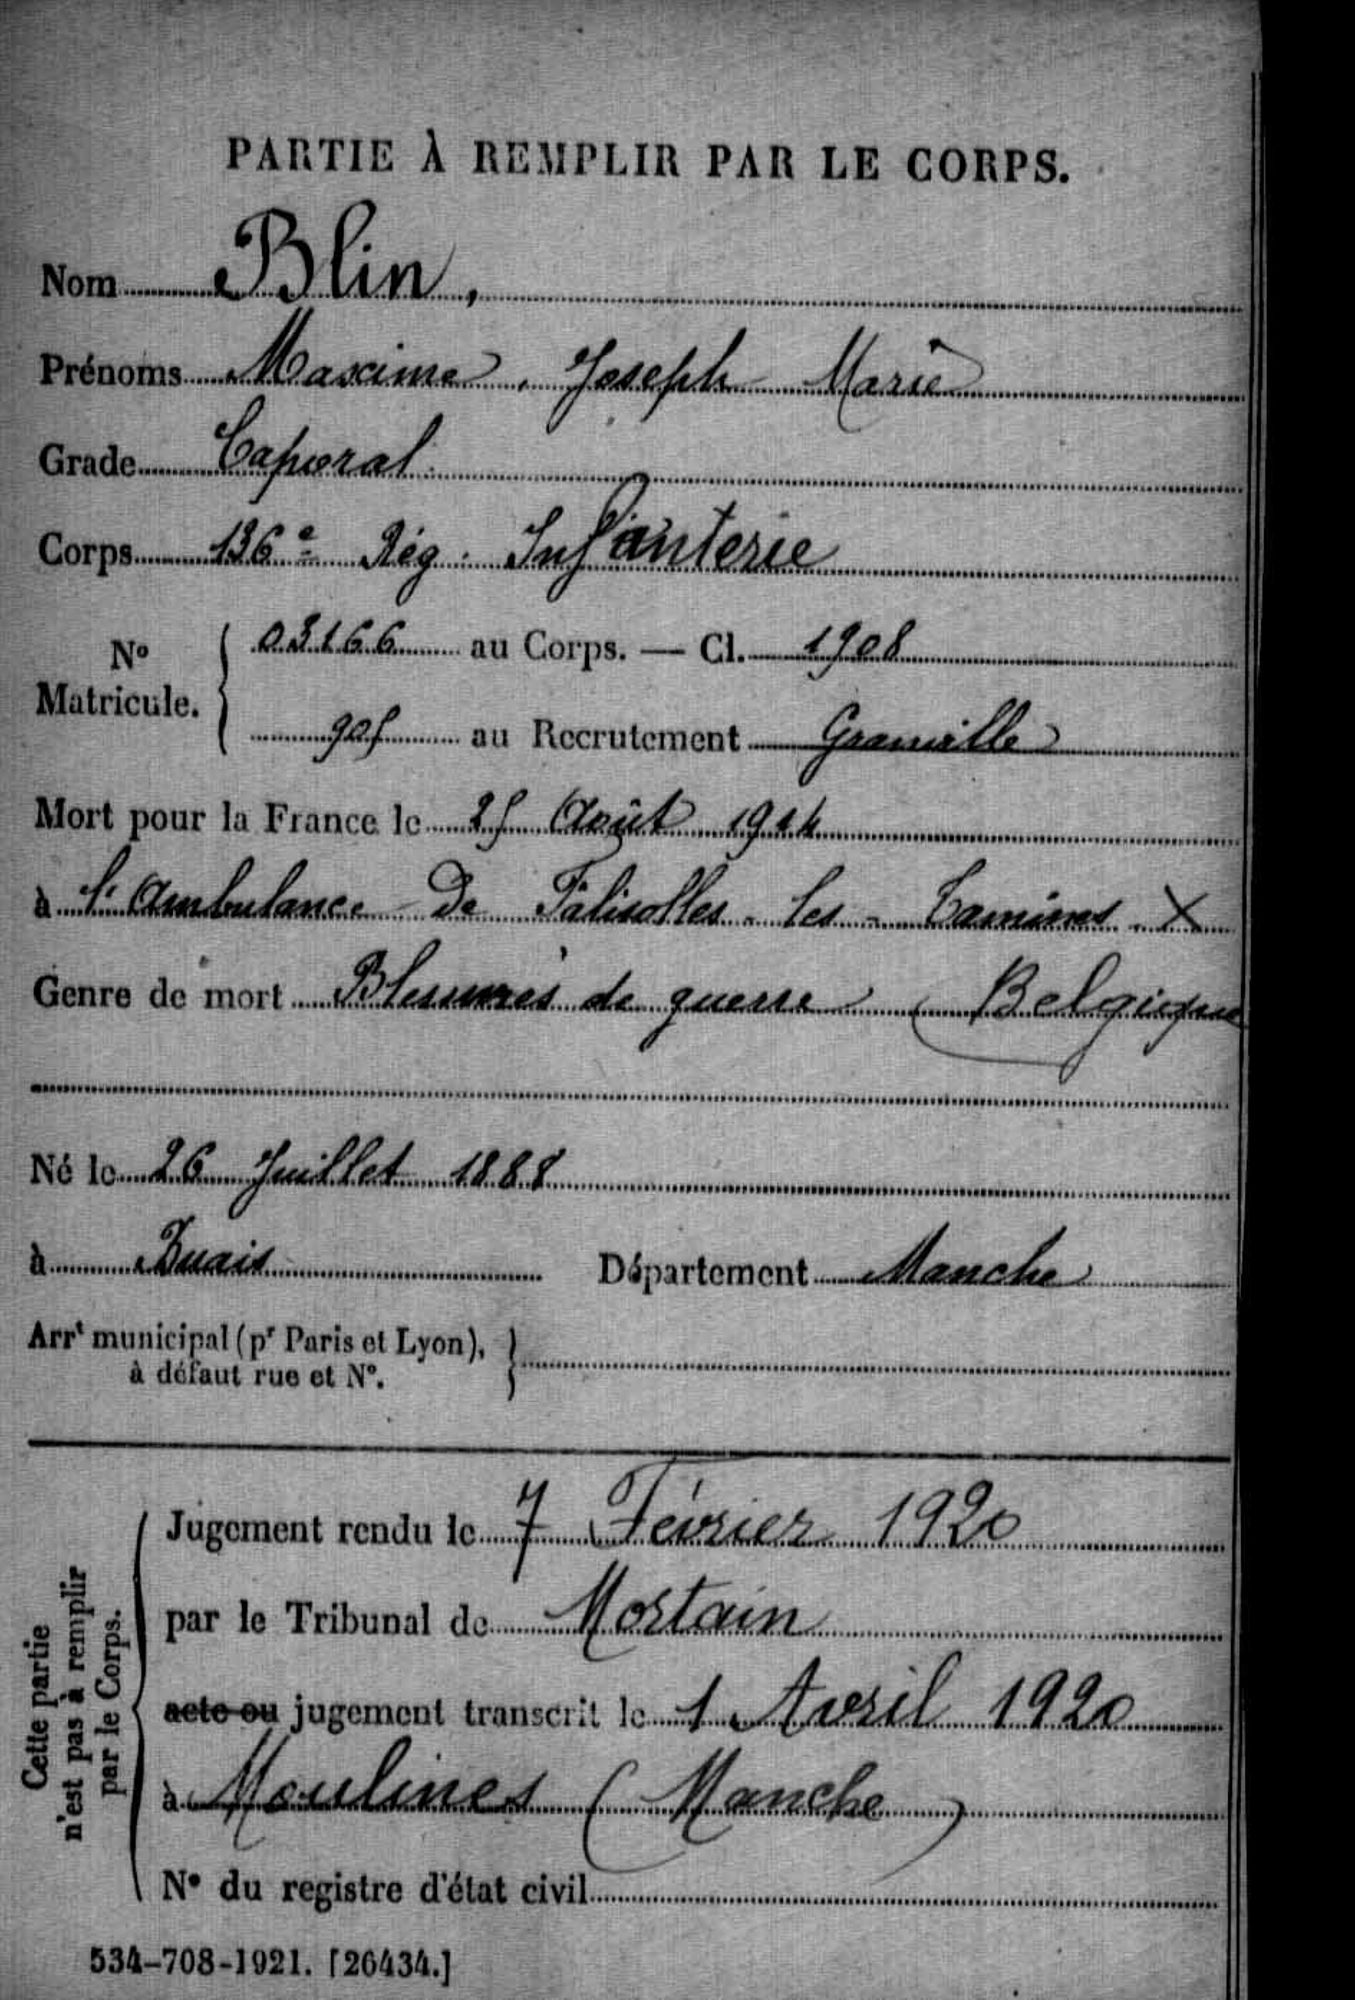 PARTIE À REMPLIR PAR LE CORPS.
Nom Blin,
Prénoms Maxime, Joseph Marie
Grade Caporal
Corps 136e Rég. Infanterie
No Matricule. 03166 au Corps. — Cl. 1908
905 au Recrutement Granville
Mort pour la France le 25 Août 1914
à l'Ambulance de Falisolles-les-Tamines X
Genre de mort Blessures de guerre (Belgique
Né le 26 Juillet 1888
à Buais Département Manche
Arrt municipal (pr Paris et Lyon),
à défaut rue et No.
Cette partie
n'est pas à remplir
par le Corps.
Jugement rendu le 7 Février 1920
par le Tribunal de Mortain
acte ou jugement transcrit le 1 Avril 1920
à Moulines (Manche)
No du registre d'état civil
534-708-1921. [26434.]